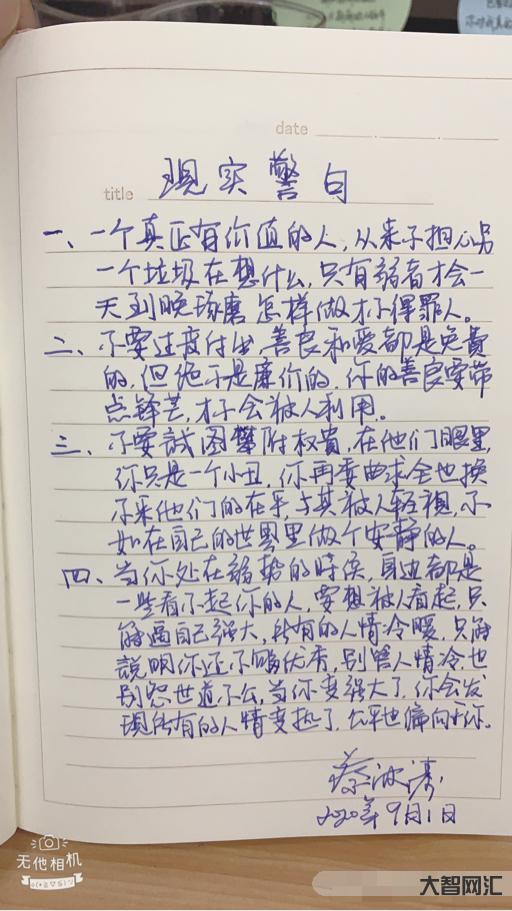 date
title 现实警句
一、一个真正有价值的人，从来不担心另
一个垃圾在想什么，只有弱者才会一
天到晚琢磨怎样做才不得罪人。
二、不要过度付出，善良和爱都是免費
的，但绝不是廉价的，你的善良要带
点锋芒，才不会被人利用。
三、不要試图攀附权貴，在他们眼里，
你只是一个小丑，你再委曲求全也换
不来他们的在乎，与其被人轻視，不
如在自己的世界里做个安静的人。
四、当你处在弱势的時侯，身边都是
一些看不起你的人，要想被人看起，只
能逼自己强大，所有的人情冷暖，只能
説明你还不够优秀，别管人情冷，也
别怨世道不公，当你变强大了，你会发
现所有的人情变热了，公平也偏向于你。
蔡波涛
2020年9月1日
无他相机
大智网汇